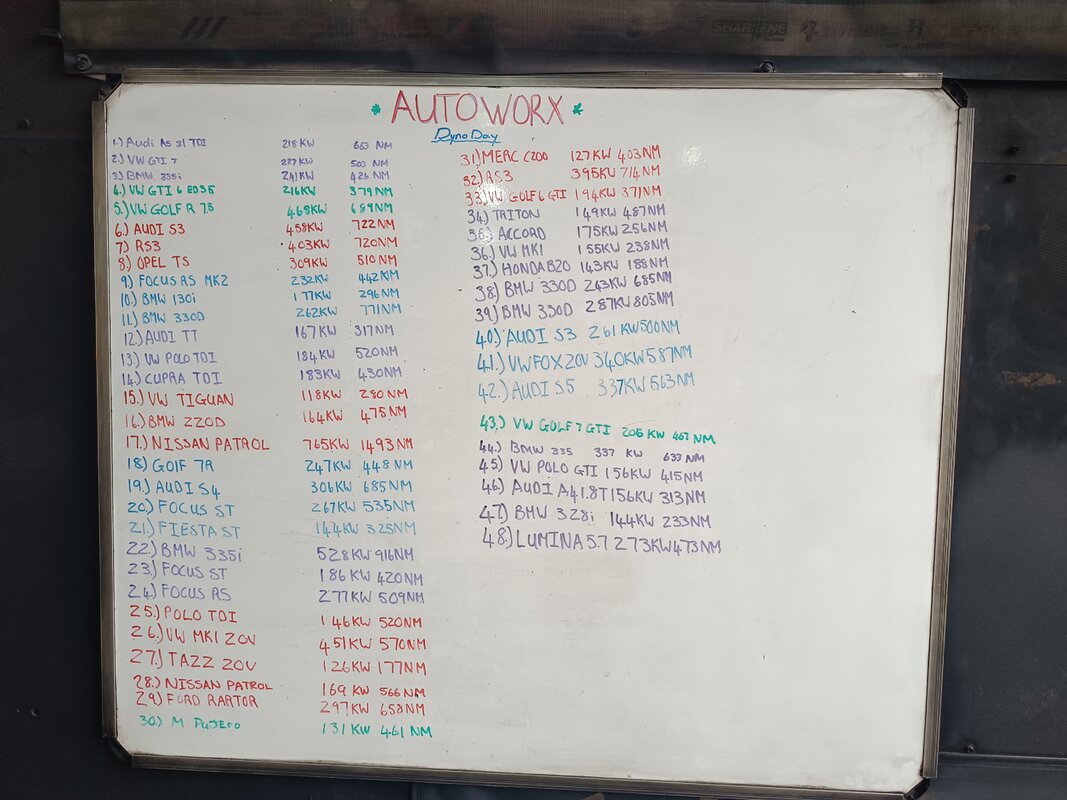 * AUTOWORX *
Dyno Day
1.) Audi A5 3l TDI 218KW 663 NM
2.) VW GTI 7 227KW 503 NM
3.) BMW 335i 241KW 426 NM
4.) VW GTI 6 ED35 216KW 379NM
5.) VW GOLF R 7.5 468KW 689NM
6.) AUDI S3 458KW 722NM
7) RS3 403KW 720NM
8) OPEL TS 309KW 510NM
9) FOCUS RS MK2 232KW 442NM
10.) BMW 130i 177KW 296NM
11.) BMW 330D 262KW 771NM
12.) AUDI TT 167KW 317NM
13.) VW POLO TDI 184KW 520NM
14.) CUPRA TDI 183KW 430NM
15.) VW TIGUAN 118KW 280NM
16.) BMW 220D 164KW 475NM
17.) NISSAN PATROL 765KW 1493NM
18) GOlF 7R 247KW 448NM
19.) AUDI S4 306KW 685NM
20.) FOCUS ST 267KW 535NM
21.) FIESTA ST 144KW 325NM
22.) BMW 335i 528KW 916NM
23.) FOCUS ST 186KW 420NM
24.) FOCUS RS 277KW 509NM
25.) POLO TDI 146KW 520NM
26.) VW MK1 20V 451KW 570NM
27.) TAZZ 20V 126KW 177NM
28.) NISSAN PATROL 169 KW 566NM
29.) FORD RARTOR 297KW 658NM
30.) M PaJero 131KW 461 NM
31.) MERC C200 127KW 403NM
32.) RS3 395KW 714NM
33.) VW GOLF 6 GTI 194KW 371NM
34.) TRITON 149KW 487NM
35.) ACCORD 175KW 256NM
36.) VW MK1 155KW 238NM
37.) HONDA B20 143KW 188NM
38.) BMW 330D 243KW 685NM
39.) BMW 330D 287KW 805NM
40.) AUDI S3 261KW 500NM
41.) VW FOX 20V 340KW 587NM
42.) AUDI S5 337KW 563NM
43.) VW GOLF 7 GTI 205 KW 467 NM
44.) BMW 335 337 KW 633 NM
45.) VW POLO GTI 156KW 415NM
46.) AUDI A4 1.8T 156KW 313NM
47.) BMW 328i 144KW 233NM
48.) LUMINA 5.7 273KW 473NM